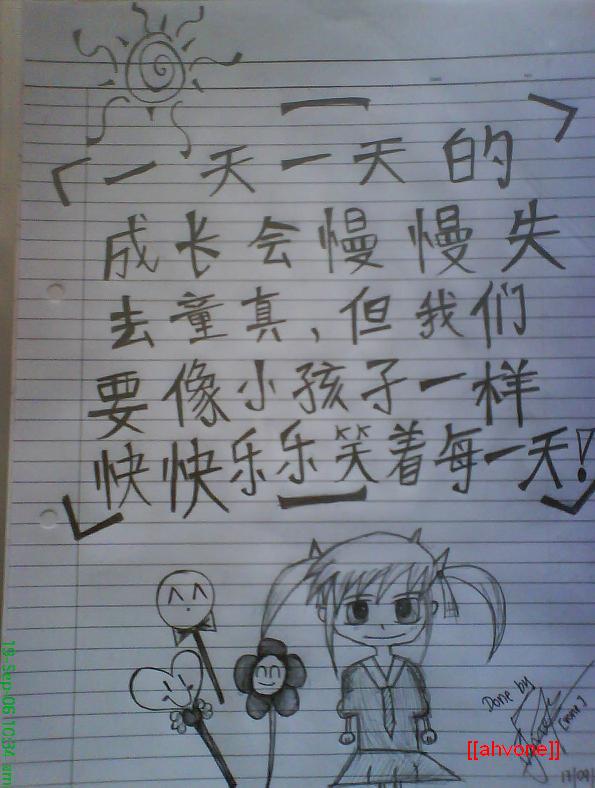 一天一天的
成长会慢慢失
去童真，但我们
要像小孩子一样
快快乐乐笑着每一天!
Done by
[[ahvone]]
19-Sep-06 10:34 am